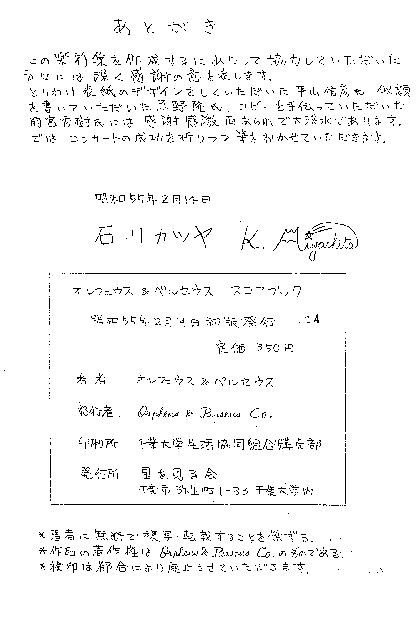 あとがき
この楽譜集を作成するにあたって協力していただいた
方々には深く感謝の意を表します。
とりわけ表紙のデザインをしていただいた平山 似顔
を書いていただいた 野 氏、コピーを手伝っていただいた
には感謝感激雨あられで大洪水であります。
では コンサートの成功を祈りつつ筆をおかせていただきます。
昭和55年2月 日
石川カツヤ K. Miyashita
オルフェウス & ペルセウス スコアブック
昭和55年2月 日 初版発行
定価 350円
著者 オルフェウス & ペルセウス
発行者 Orpheus & Perseus Co.
印刷所 千葉大学生活協同組合購買部
発行所 星を見る会
千葉市弥生町1-33 千葉大学内
*著者に無断で複写・転載することを禁ずる。
*作品の著作権は Orpheus & Perseus Co. のみである。
*検印は都合により廃止させていただきます。